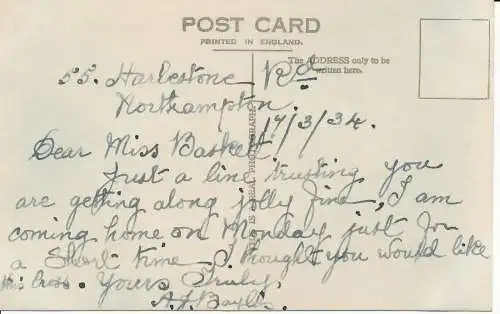 POST CARD
PRINTED IN ENGLAND.
The ADDRESS only to be
written here.
55. Harlestone Rd
Northampton.
17/3/34.
Dear Miss Baskett
Just a line trusting you
are getting along jolly fine, I am
coming home on Monday just for
a short time I thought you would like
this Cross. Yours Truly,
THIS IS A REAL PHOTOGRAPH